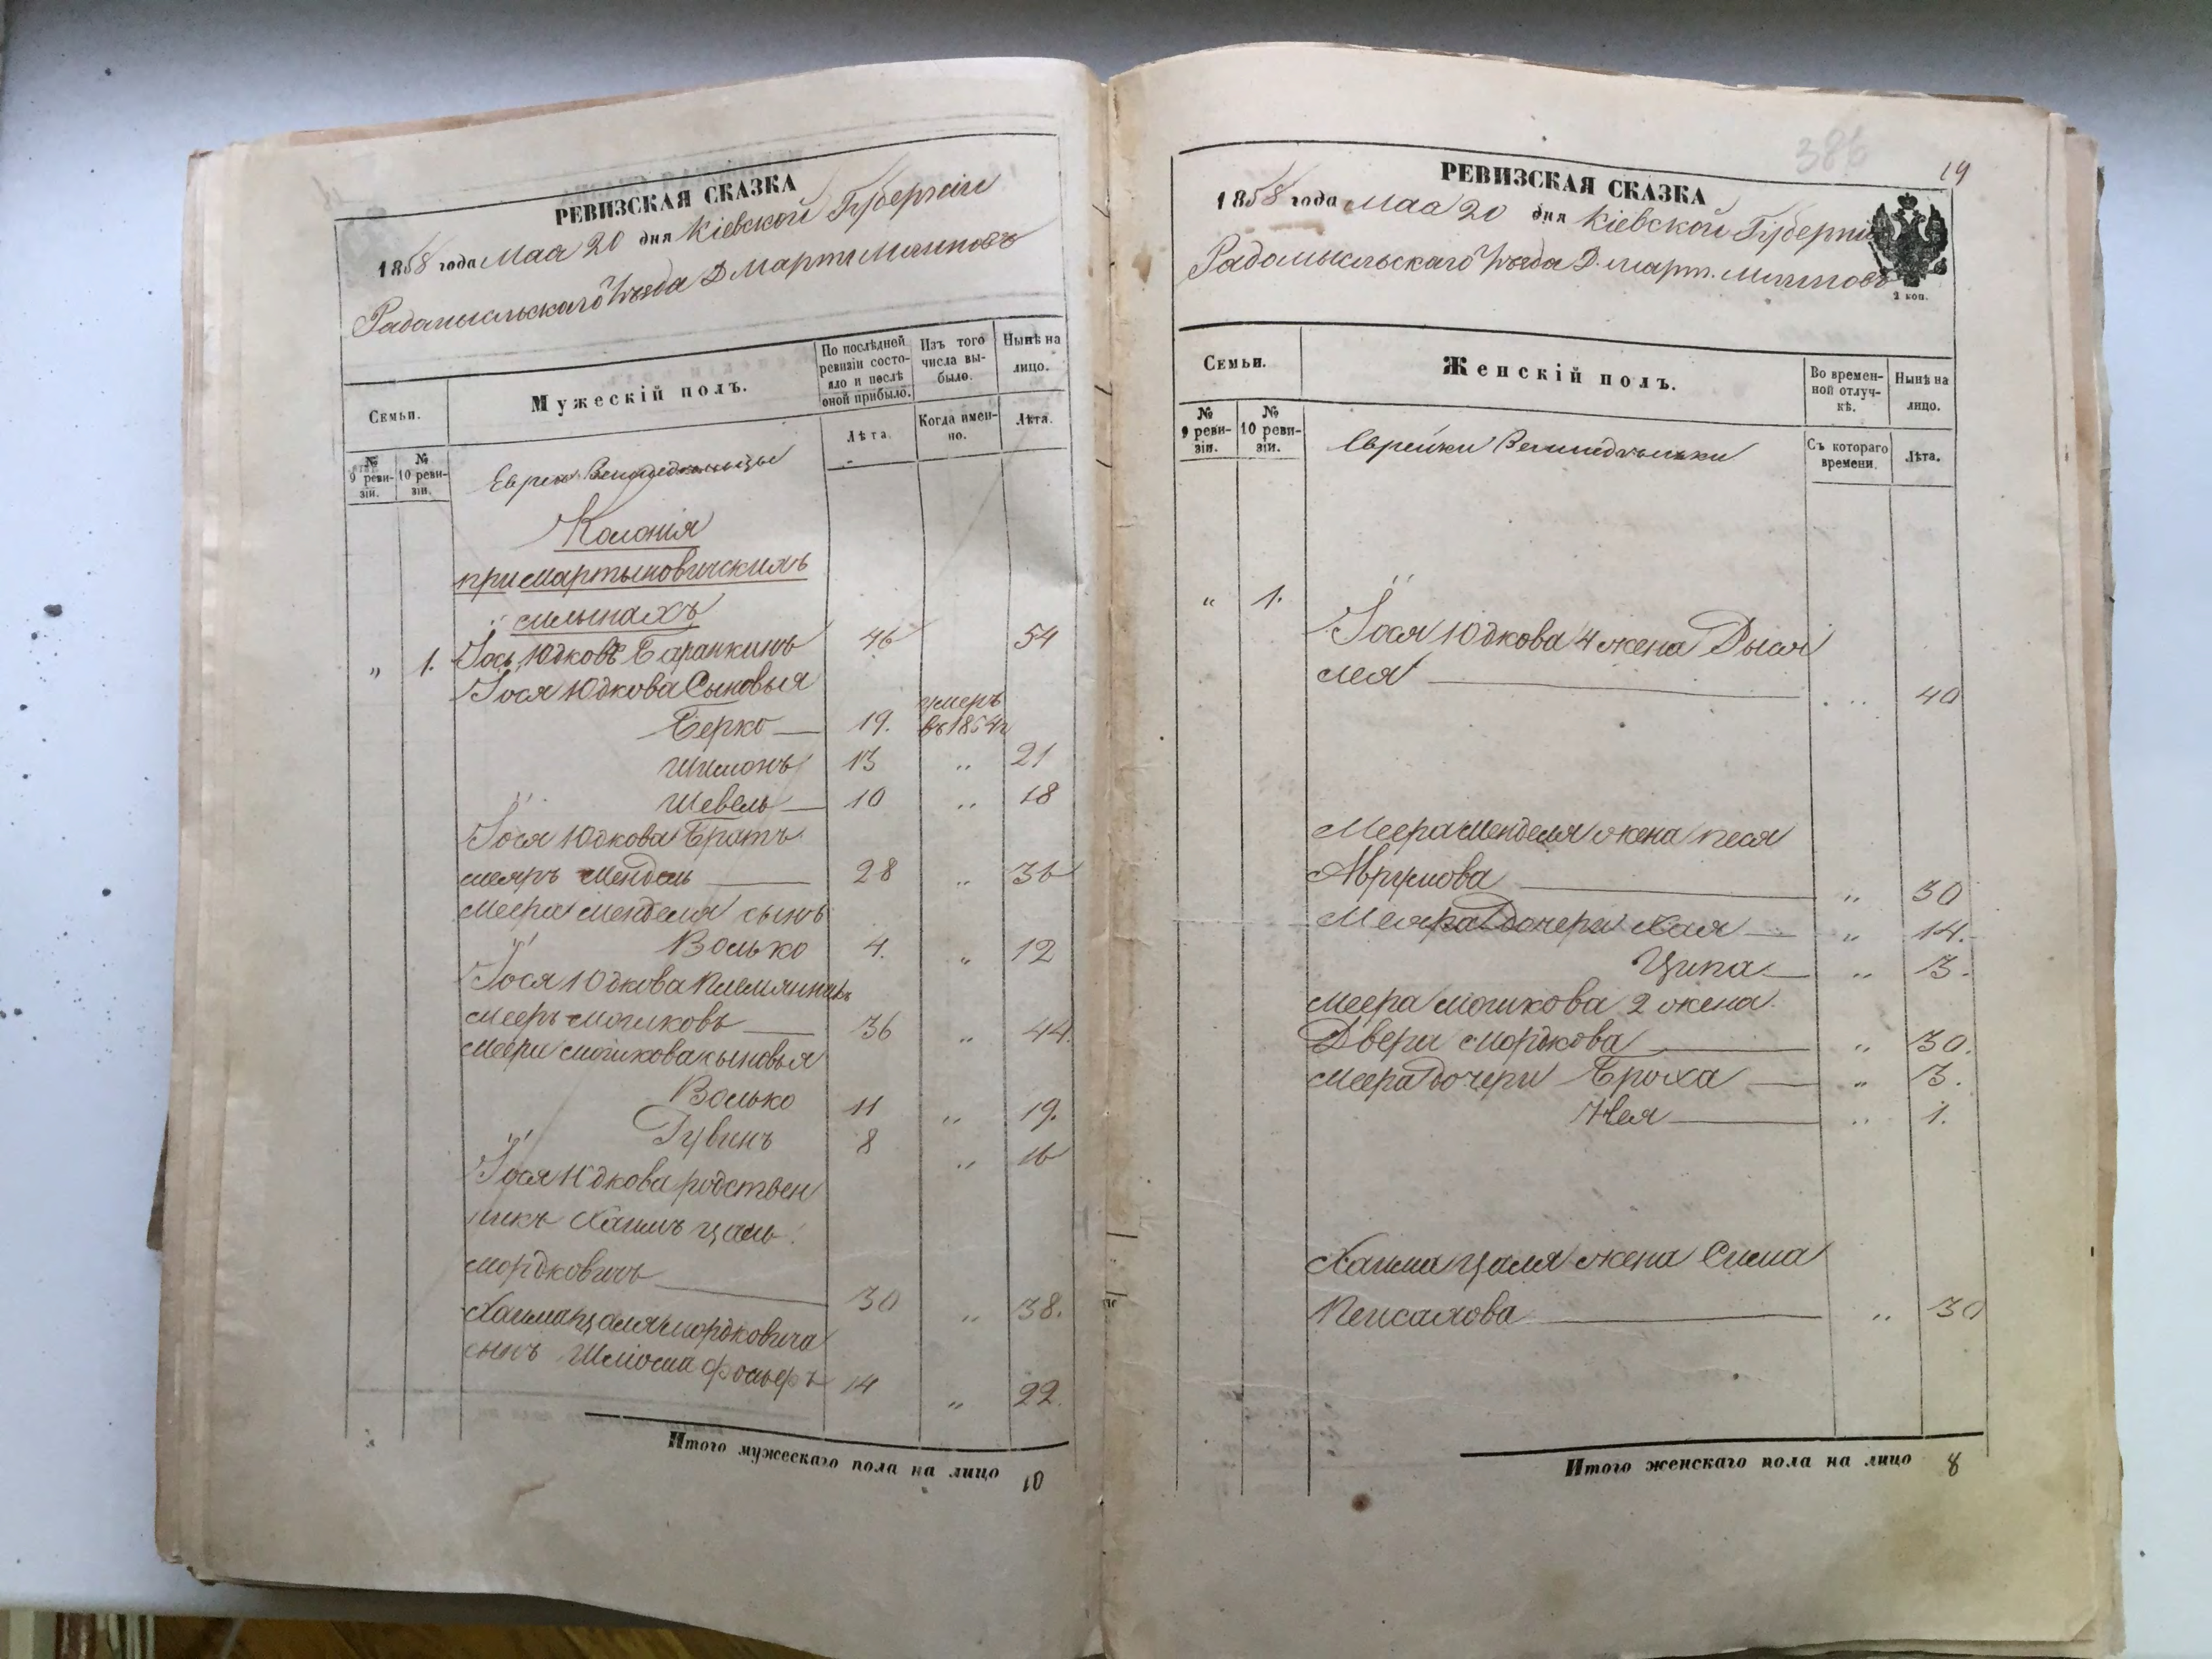 РЕВИЗСКАЯ СКАЗКА
1858 года Мая 20 дня Кіевской Губерніи
Радомысльскаго Уѣзда Д Март
По послѣдней ревизіи состояло и послѣ оной прибыло.
Изъ того числа выбыло.
Нынѣ на лицо.
Семьи.
Мужескій полъ.
Лѣта.
Когда именно.
Лѣта.
№ 9 ревизіи.
№ 10 ревизіи.
Евреи
Колонія
при Мартыновическихъ
1. Іось Юдковъ Баранкинъ 46 54
Іося Юдкова Сыновья
Берко 19. умеръ въ 1854 г
Шимонъ 13 „ 21
Шевель 10 „ 18
Іося Юдкова Братъ
Меяръ Мендель 28 „ 36
Меера Менделя сынъ
Волько 4. „ 12
Іося Юдкова Племянникъ
Мееръ Мошковъ 36 „ 44.
Меера Мошкова сыновья
Волько 11 „ 19.
Рувинъ 8 „ 16
Іося Юдкова родствен
никъ Хаимъ Цаль
Мордковичъ 30 „ 38.
Хаима Цаля Мордковича
сынъ Шліома 14 „ 22.
Итого мужескаго пола на лицо 10
386
19
РЕВИЗСКАЯ СКАЗКА
1858 года Мая 20 дня Кіевской Губерніи
Радомысльскаго Уѣзда Д. Март.
2 коп.
Семьи.
Женскій полъ.
Во временной отлучкѣ.
Нынѣ на лицо.
№ 9 ревизіи.
№ 10 ревизіи.
Еврейки
Съ котораго времени.
Лѣта.
„ 1.
Іося Юдкова 4 жена Двыся
Лея „ 40
Меера Менделя жена Песя
Аврумова „ 30
Меяра дочери Хая „ 14.
Ципа „ 3.
Меера Мошкова 2 жена
Двера Мордкова „ 30.
Меера дочери Броха „ 3.
Нея „ 1.
Хаима Цаля жена Сима
„ 30
Итого женскаго пола на лицо 8